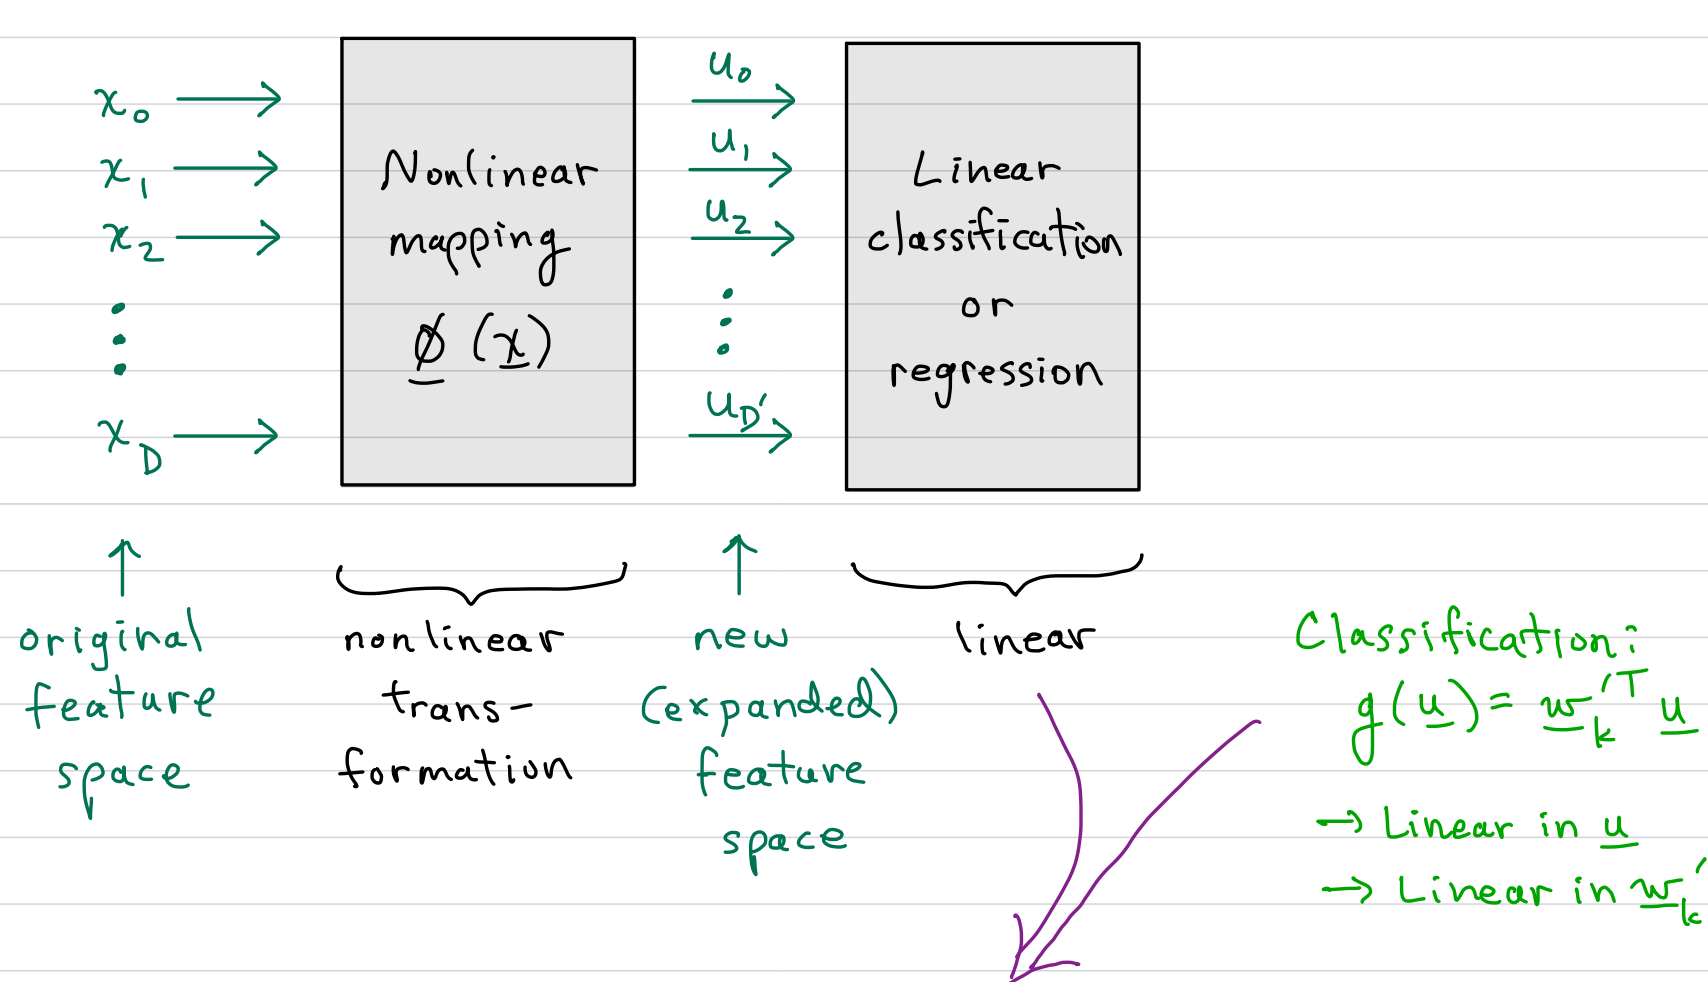 x₀
x₁
x₂
⋮
x_D
Nonlinear
mapping
ϕ (x)
u₀
u₁
u₂
⋮
u_D′
Linear
classification
or
regression
original
feature
space
nonlinear
trans-
formation
new
(expanded)
feature
space
linear
Classification:
g(u) = w′ₖᵀ u
→ Linear in u
→ Linear in w′ₖ